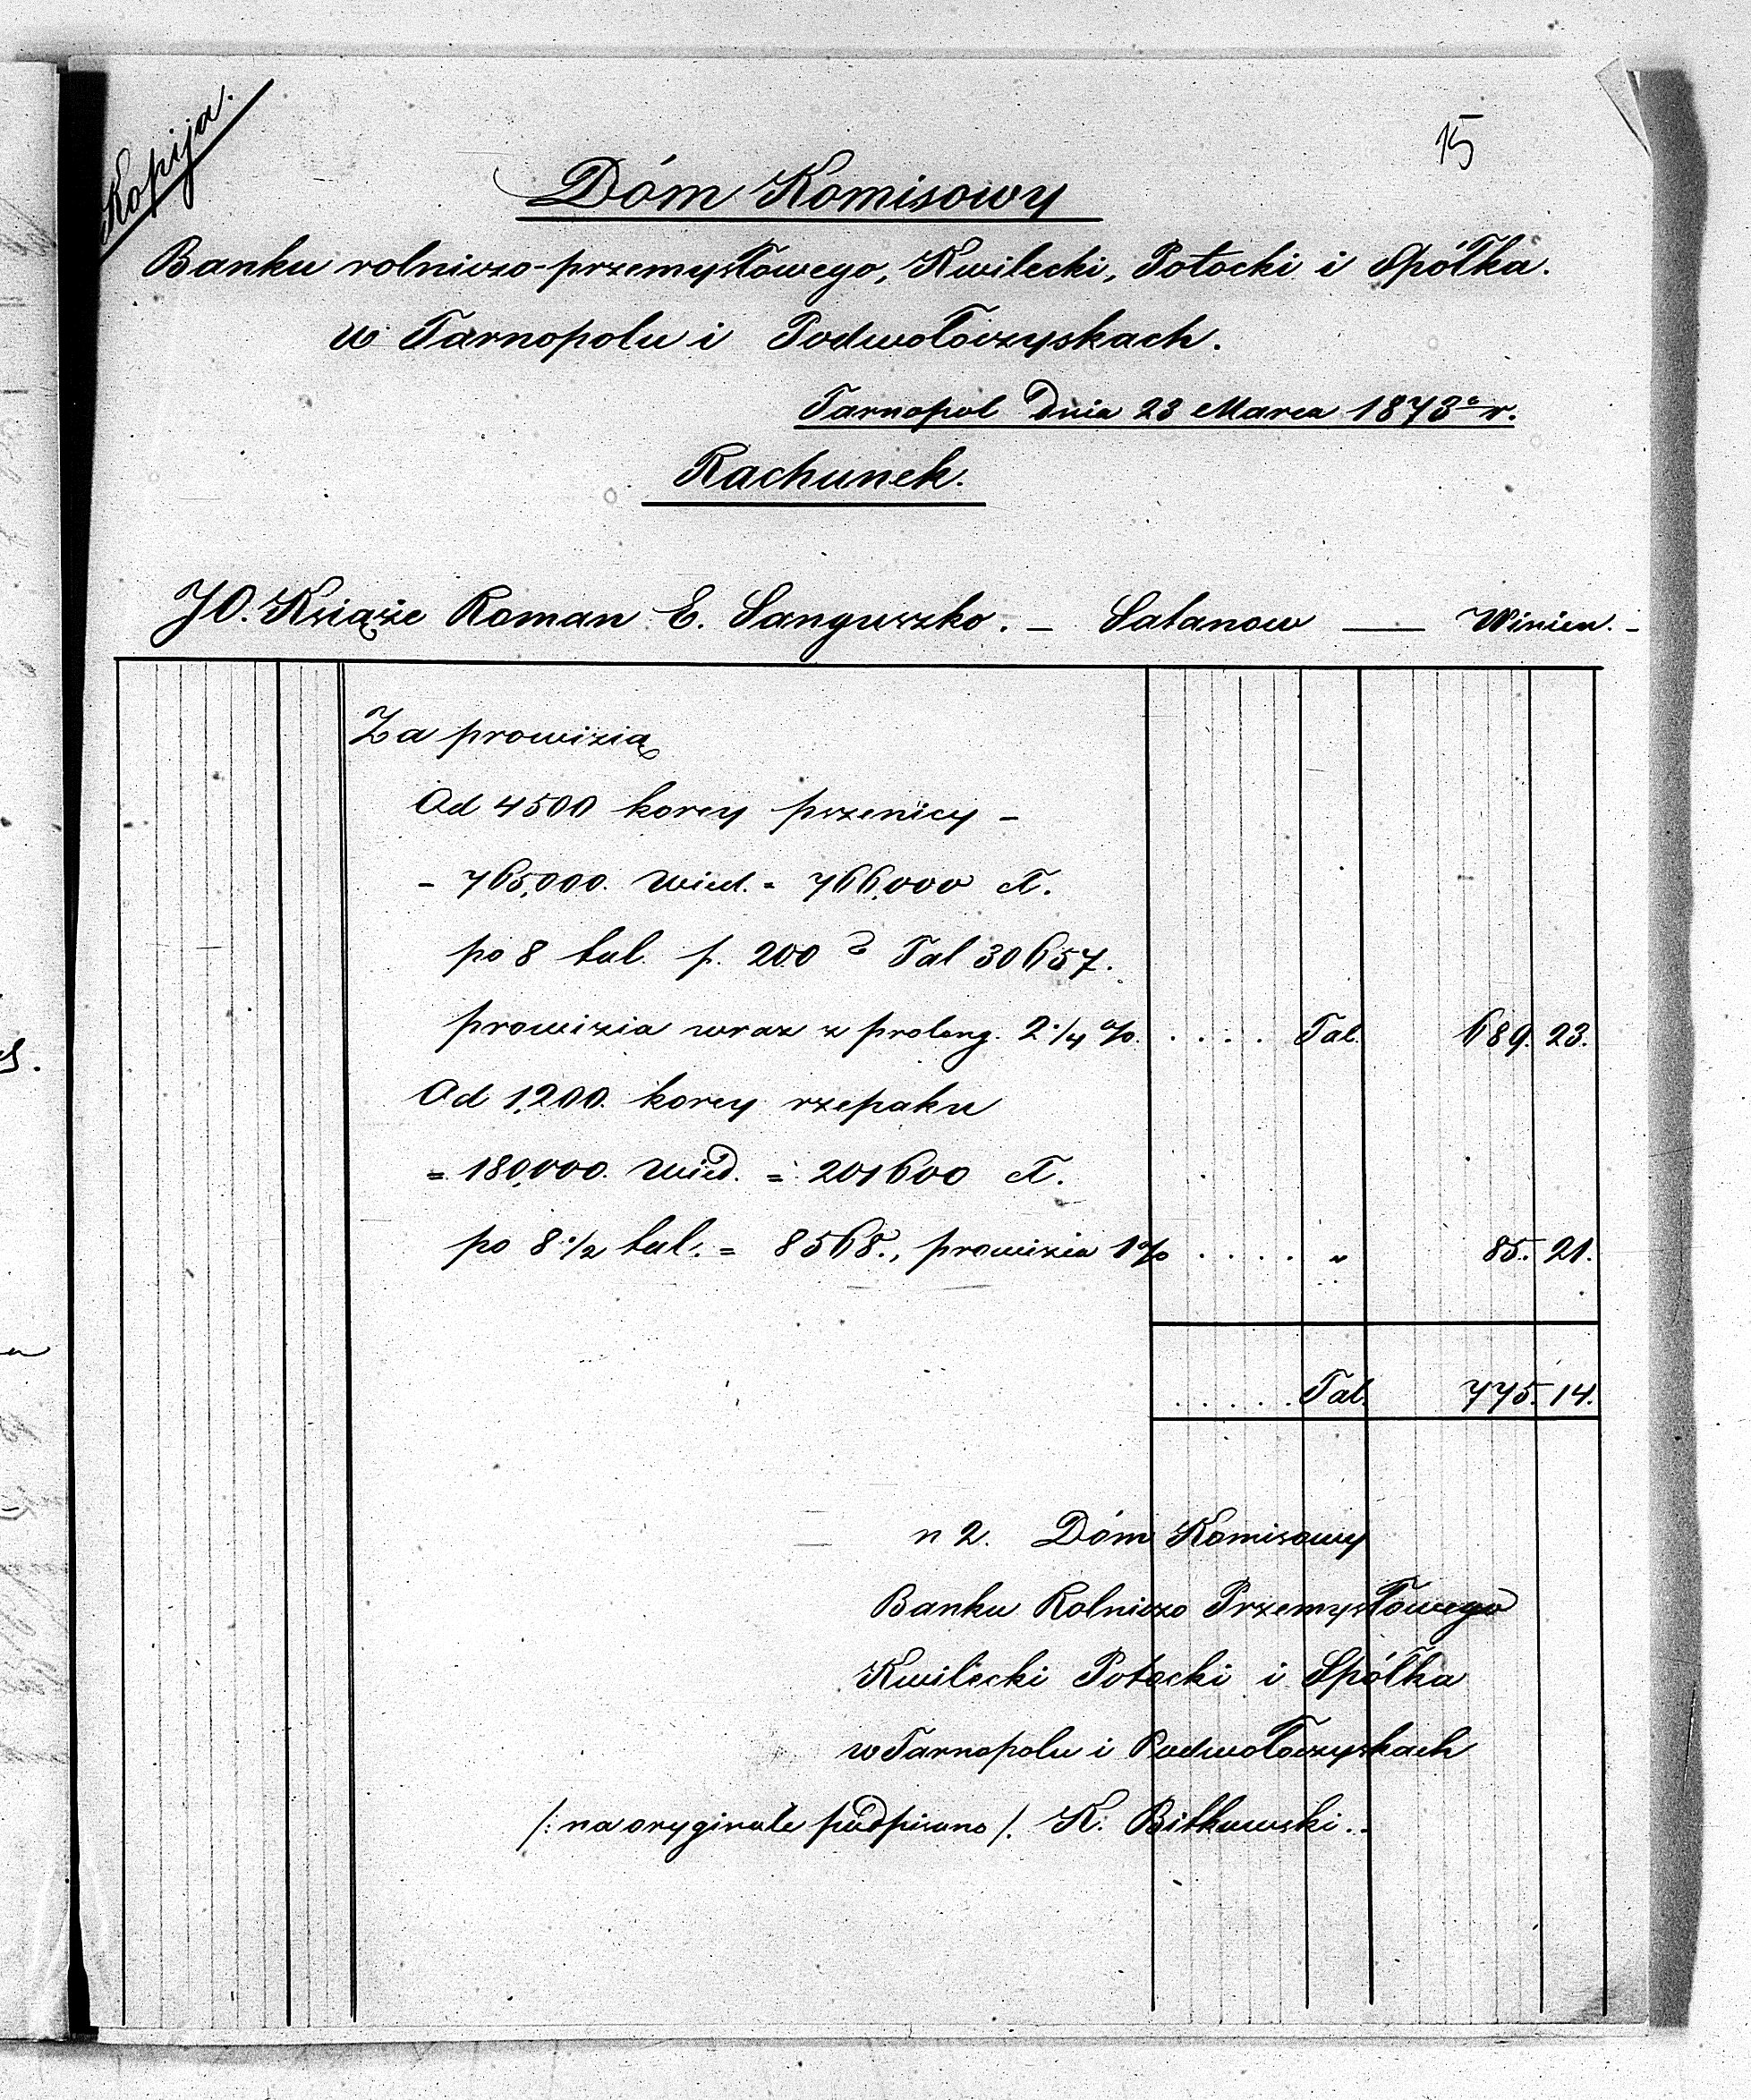 Kopija.
15
Dóm Komisowy
Banku rolniczo-przemysłowego, Kwilecki, Potocki i Spółka.
w Tarnopolu i Podwołoczyskach.
Tarnopol Dnia 23 Marca 1873 r.
Rachunek.
JO. Książe Roman E. Sanguszko. – Satanow — Winien. –
Za prowizią
Od 4500 korcy pszenicy –
– 765,000. Wied. = 766,000 ct.
po 8 tal. p. 200 Tal 30657.
prowizia wraz z prolong. 2 1/4 %. . . . . Tal. 689. 23.
Od 1,200. korcy rzepaku
= 180,000. Wied. = 201600 ct.
po 8 1/2 tal. = 8568., prowizia 1% . . . . " 85. 21.
. . . . . Tal. 775. 14.
n 2. Dóm Komisowy
Banku Rolniczo Przemysłowego
Kwilecki Potocki i Spółka
w Tarnopolu i Podwołoczyskach
/: na oryginale podpisano /. K. Bitkowski..